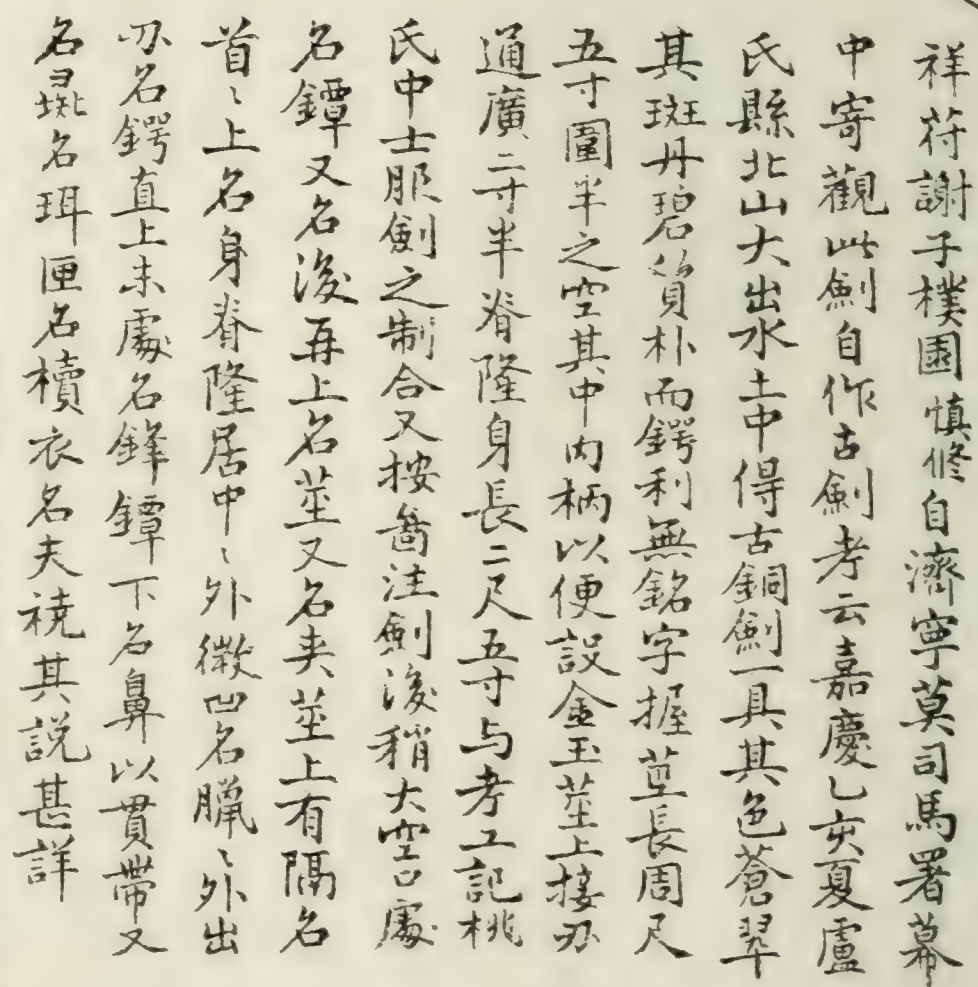 祥苻謝子樸園慎修自濟寧莫司馬署幕
中寄觀此劍自作古劍考云嘉慶乙亥夏盧
氏縣北山大出水土中得古銅劍一具其色蒼翠
其斑丹碧質朴而鍔利無銘字握莖長周尺
五寸圍半之空其中内柄以便設金玉莖上接刃
通廣二寸半脊隆身長二尺五寸与考工記桃
氏中士服劍之制合又按啚注劍後稍大空口處
名鐔又名後再上名莖又名夹莖上有隔名
首〻上名身脊隆居中〻外微凹名臘〻外出
刃名鍔直上末處名鋒鐔下名鼻以貫帶又
名璏名珥匣名櫝衣名夫襓其説甚詳